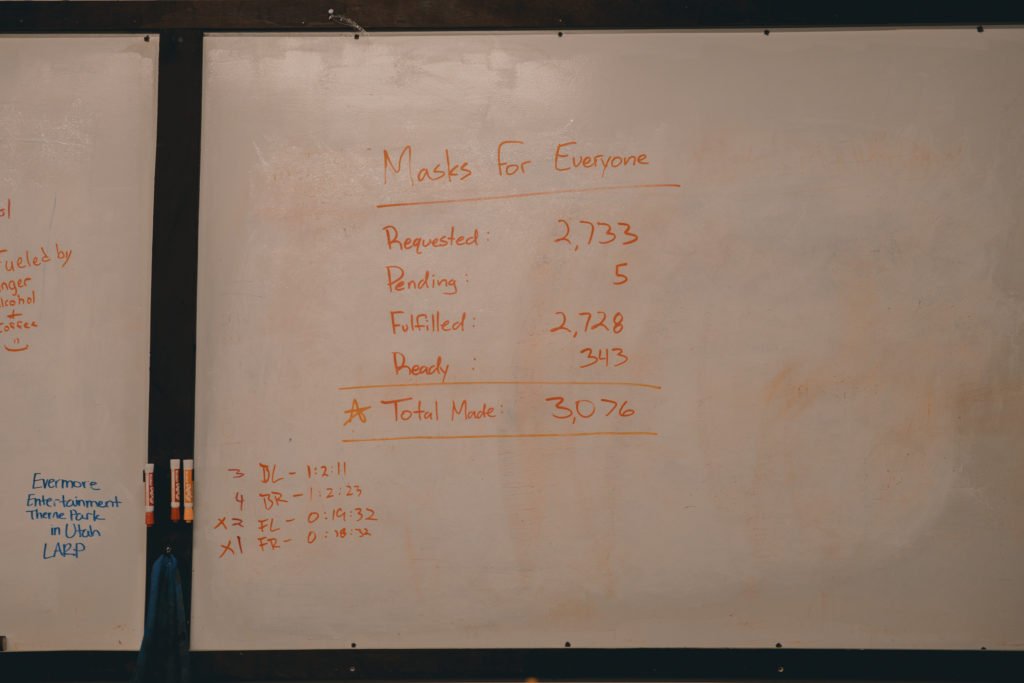 Fueled by
+
Coffee
Evermore
Entertainment
Theme Park
in Utah
LARP
Masks For Everyone
Requested: 2,733
Pending: 5
Fulfilled: 2,728
Ready : 343
Total Made: 3,076
3 DL - 1:2:11
4 BR - 1:2:23
x2 FL - 0:19:32
x1 FR - 0:18:32